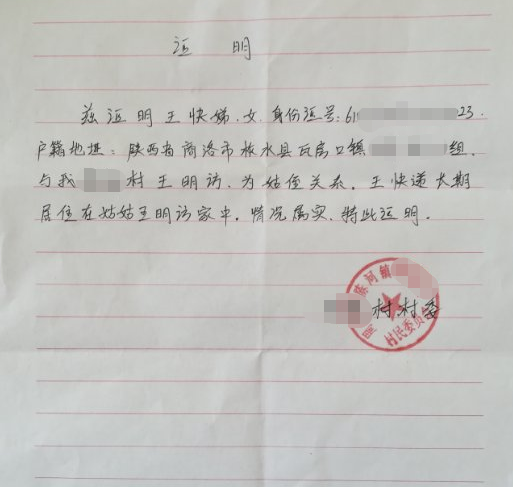 证 明
兹证明王快娣、女、身份证号:61 23.
户籍地址:陕西省商洛市柞水县瓦房口镇 组,
与我 村王明访,为姑侄关系。王快递长期
居住在姑姑王明访家中。情况属实,特此证明。
村村委
村民委员会